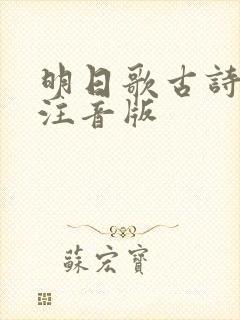 明日歌古詩
注音版
蘇宏寶